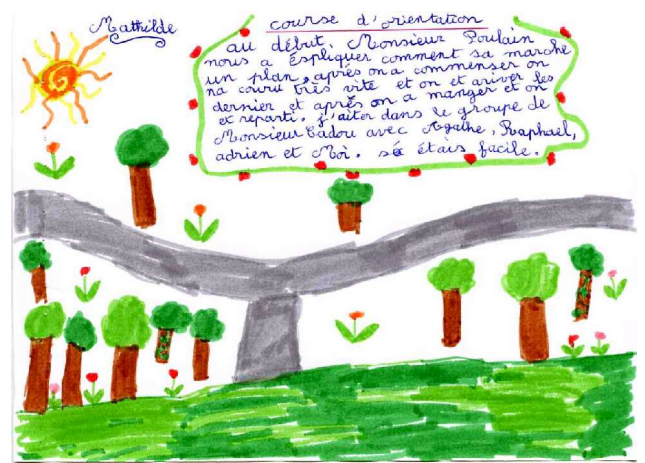 Mathilde
course d'orientation
au début, Monsieur Poulain
nous a éspliquer comment sa marche
un plan, après on a commenser on
na couru très vite et on et ariver les
dernier et après on a manger et on
et reparti. j'aiter dans le groupe de
Monsieur Cadou avec Agathe, Raphael,
adrien et Moi. sé étais facile.